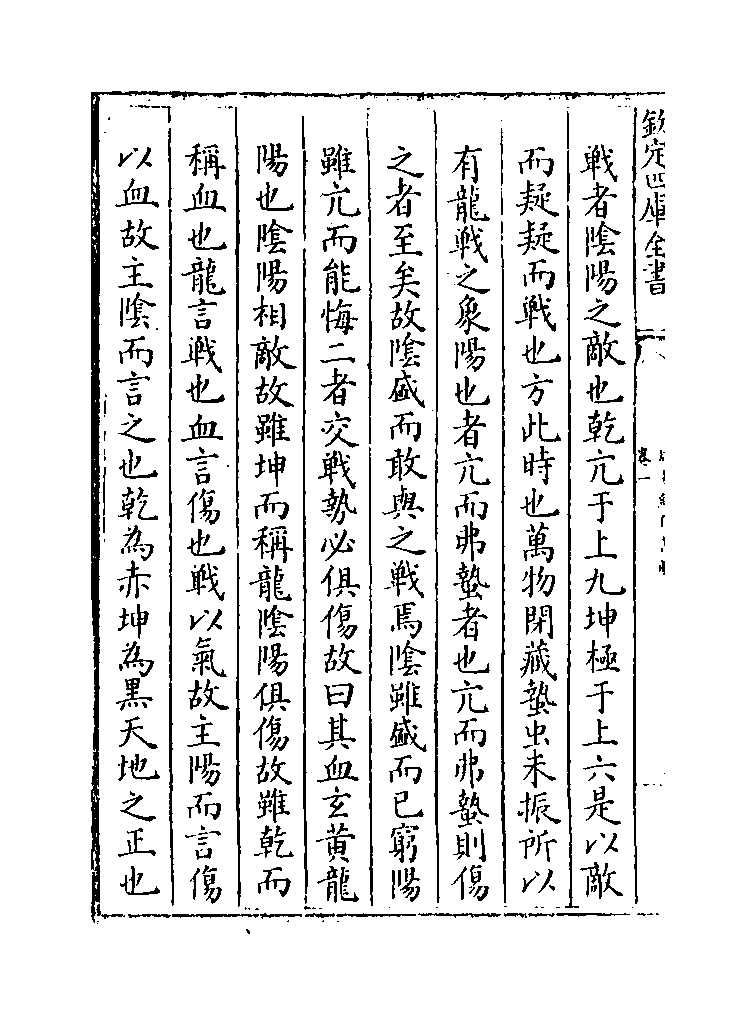 欽定四庫全書
卷一
戰者陰陽之敵也乾亢于上九坤極于上六是以敵
而疑疑而戰也方此時也萬物閉藏蟄虫未振所以
有龍戰之象陽也者亢而弗蟄者也亢而弗蟄則傷
之者至矣故陰盛而敢與之戰焉陰雖盛而已窮陽
雖亢而能悔二者交戰勢必俱傷故曰其血玄黃龍
陽也陰陽相敵故雖坤而稱龍陰陽俱傷故雖乾而
稱血也龍言戰也血言傷也戰以氣故主陽而言傷
以血故主陰而言之也乾為赤坤為黑天地之正也